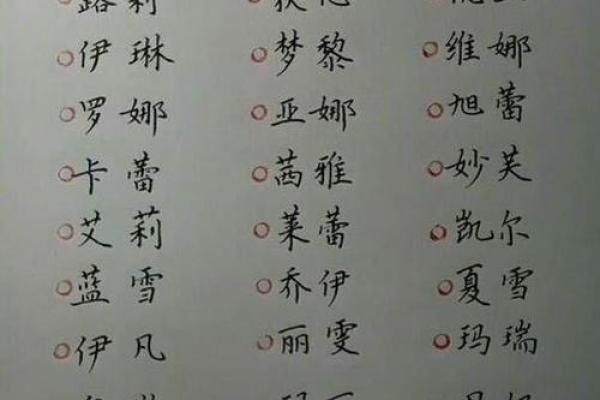 伊琳 梦黎 维娜
罗娜 亚娜 旭蕾
卡蕾 茜雅 妙芙
艾莉 莱蕾 凯尔
蓝雪 乔伊 夏雪
伊凡 丽雯 玛瑞